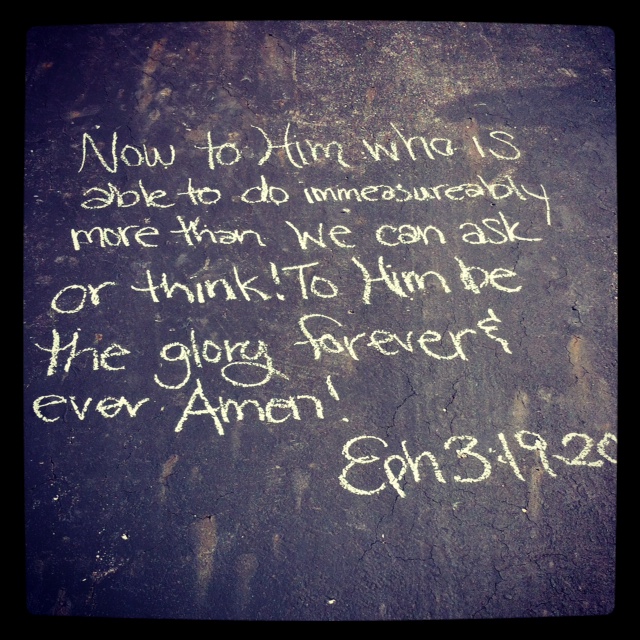 Now to Him who is
able to do immeasureably
more than we can ask
or think! To Him be
the glory forever &
ever Amen!
Eph 3:19-20